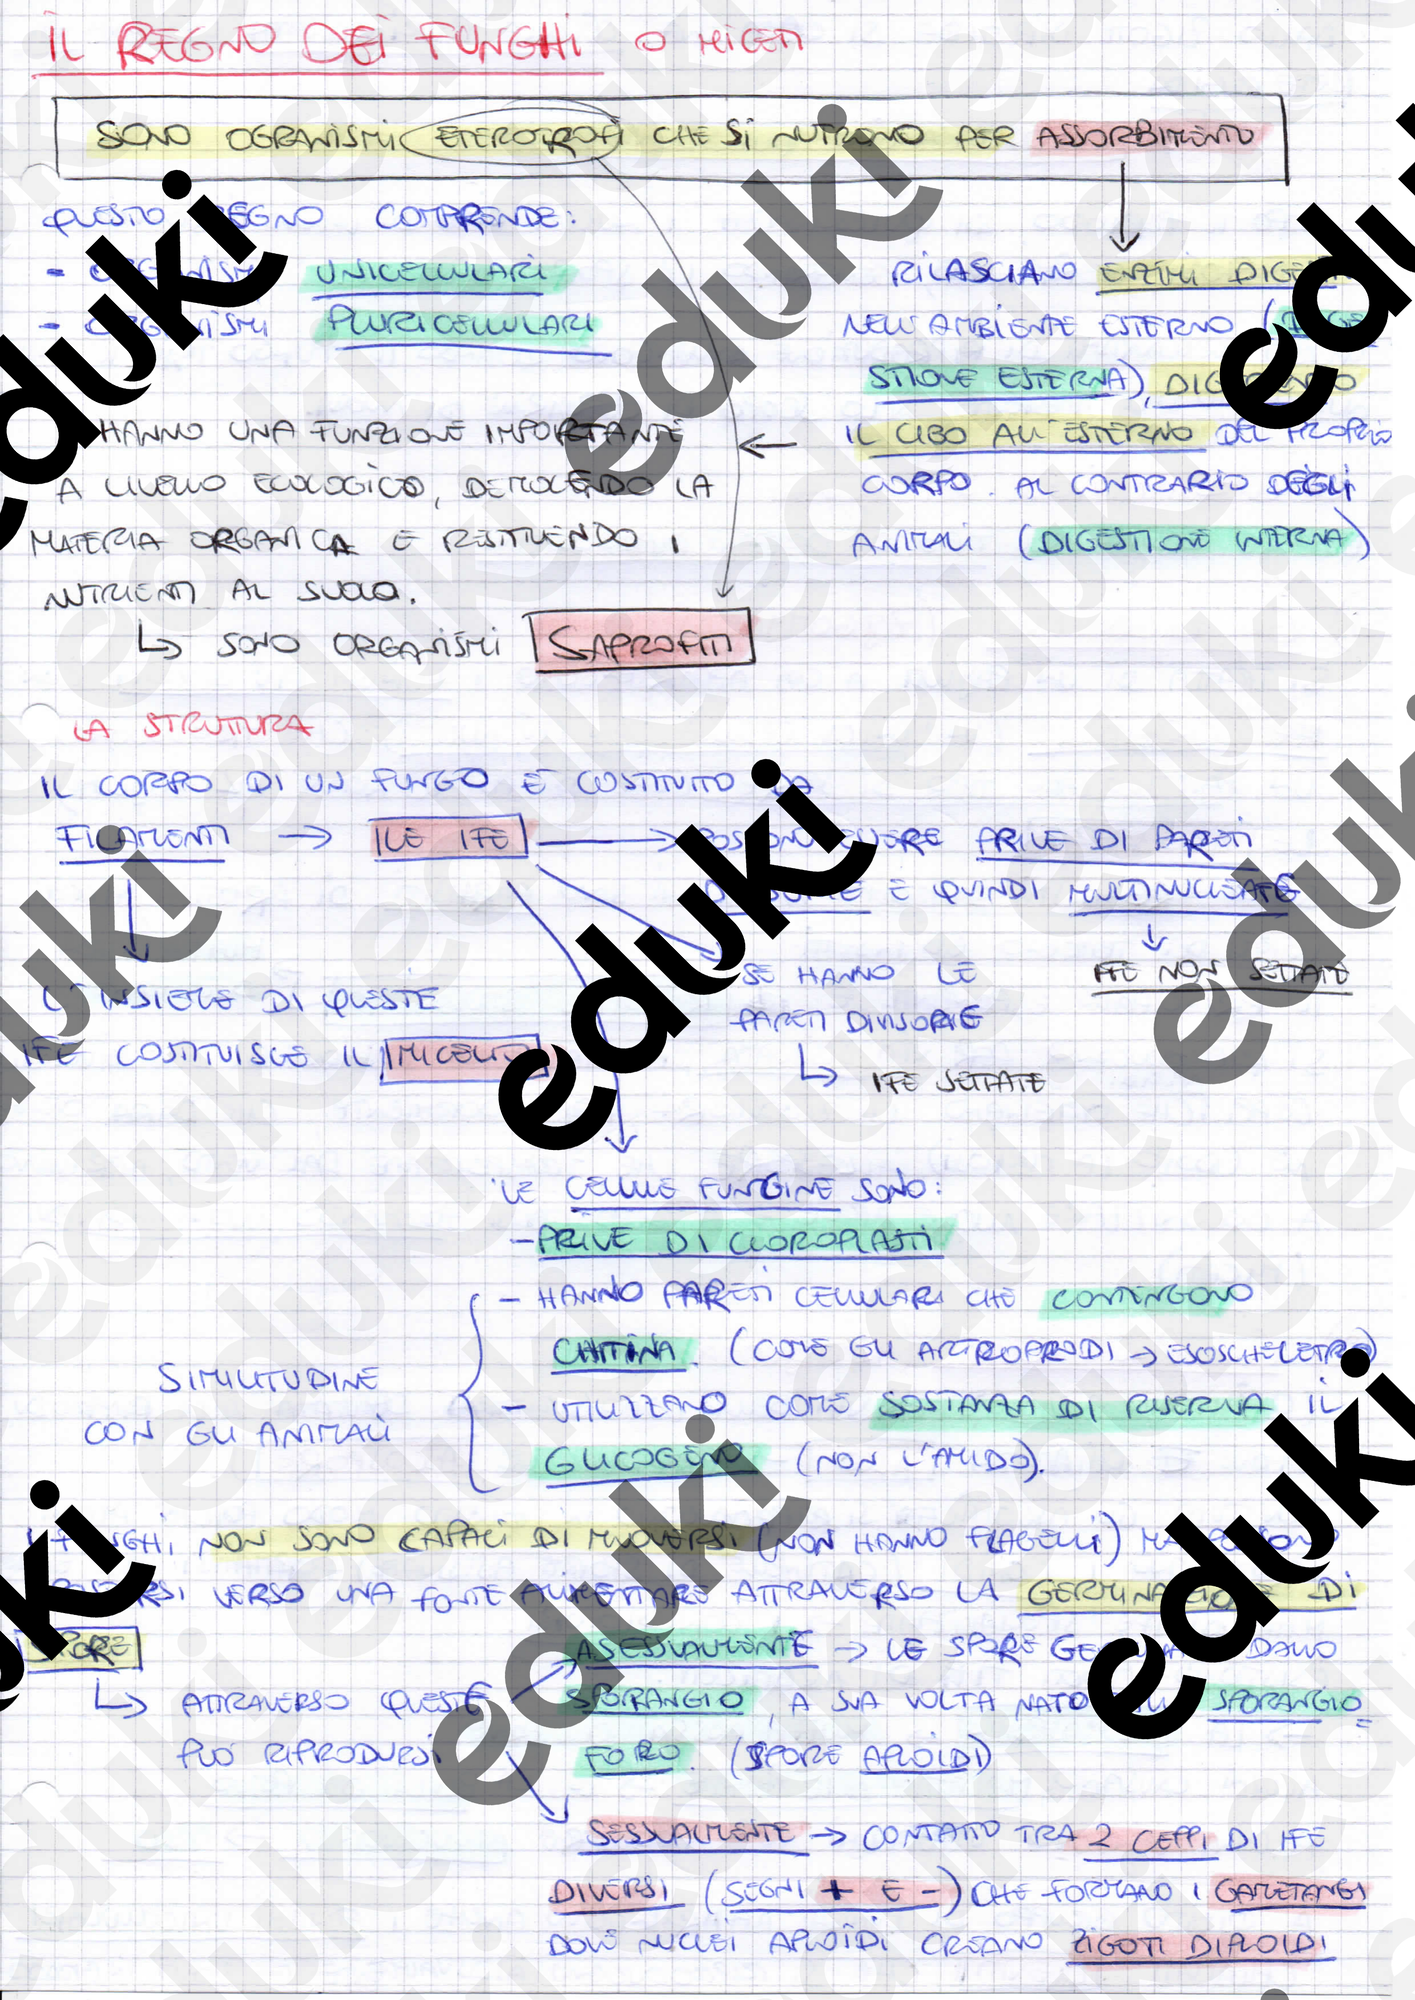 IL REGNO DEI FUNGHI O MICETI
SONO OGRANISMI ETEROTROFI CHE SI NUTRONO PER ASSORBIMENTO
QUESTO REGNO COMPRENDE:
- ORGANISMI UNICELLULARI
- ORGANISMI PLURICELLULARI
RILASCIANO ENZIMI DIGES
NELL'AMBIENTE ESTERNO (DIGE
STIONE ESTERNA), DIGERENDO
IL CIBO ALL'ESTERNO DEL PROPRIO
CORPO. AL CONTRARIO DEGLI
ANIMALI (DIGESTIONE INTERNA)
HANNO UNA FUNZIONE IMPORTANTE
A LIVELLO ECOLOGICO, DEMOLENDO LA
MATERIA ORGANICA E RESTITUENDO I
NUTRIENTI AL SUOLO.
↳ SONO ORGANISMI SAPROFITI
LA STRUTTURA
IL CORPO DI UN FUNGO È COSTITUITO DA
FILAMENTI → LE IFE → POSSONO ESSERE PRIVE DI PARETI
DIVISORIE E QUINDI MULTINUCLEATE
↓
IFE NON SETTATE
SE HANNO LE
PARETI DIVISORIE
↳ IFE SETTATE
L'INSIEME DI QUESTE
IFE COSTITUISCE IL MICELIO
LE CELLULE FUNGINE SONO:
- PRIVE DI CLOROPLASTI
- HANNO PARETI CELLULARI CHE CONTENGONO
CHITINA. (COME GLI ARTROPRODI → ESOSCHELETRO)
- UTILIZZANO COME SOSTANZA DI RISERVA IL
GLICOGENO (NON L'AMIDO).
SIMILITUDINE
CON GLI ANIMALI
I FUNGHI NON SONO CAPACI DI MUOVERSI (NON HANNO FLAGELLI) MA POSSONO
VERSO UNA FONTE ALIMENTARE ATTRAVERSO LA GERMINAZIONE DI
SPORE
↳ ATTRAVERSO QUESTE
PUÒ RIPRODURSI
ASESSUALMENTE → LE SPORE GERMINANO DALLO
SPORANGIO, A SUA VOLTA NATO SPORANGIO=
FORO. (SPORE APLOIDI)
SESSUALMENTE → CONTATTO TRA 2 CEPPI DI IFE
DIVERSI (SEGNI + E -) CHE FORMANO I GAMETANGI
DOVE NUCLEI APLOIDI CREANO ZIGOTI DIPLOIDI
eduki
eduki
eduki
eduki
eduki
eduki
eduki
eduki
eduki
eduki